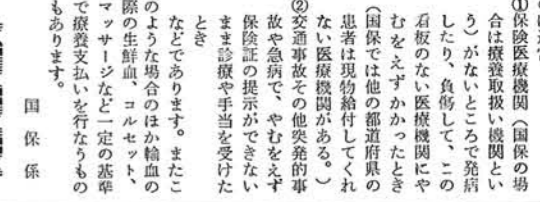 ①保険医療機関（国保の場
合は療養取扱い機関とい
う）がないところで発病
したり、負傷して、この
看板のない医療機関にや
むをえずかかったとき
（国保では他の都道府県の
患者は現物給付してくれ
ない医療機関がある。）
②交通事故その他突発的事
故や急病で、やむをえず
保険証の提示ができない
まま診療や手当を受けた
とき
などであります。またこ
のような場合のほか輸血の
際の生鮮血、コルセット、
マッサージなど一定の基準
で療養支払いを行なうもの
もあります。
国保係